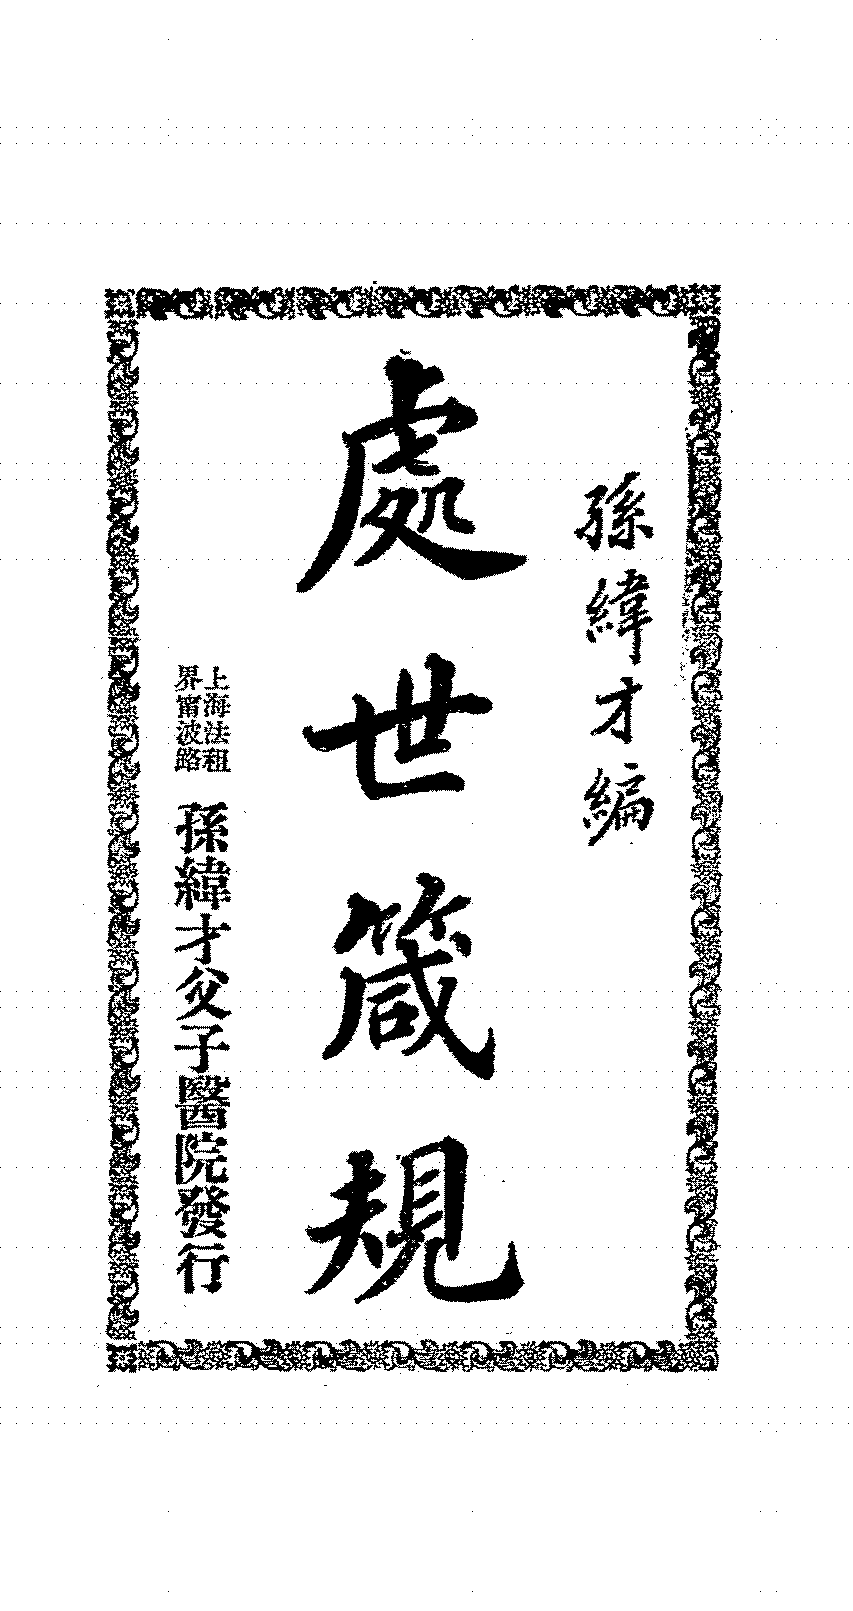 孫緯才編
處世箴規
上海法租
界甯波路
孫緯才父子醫院發行